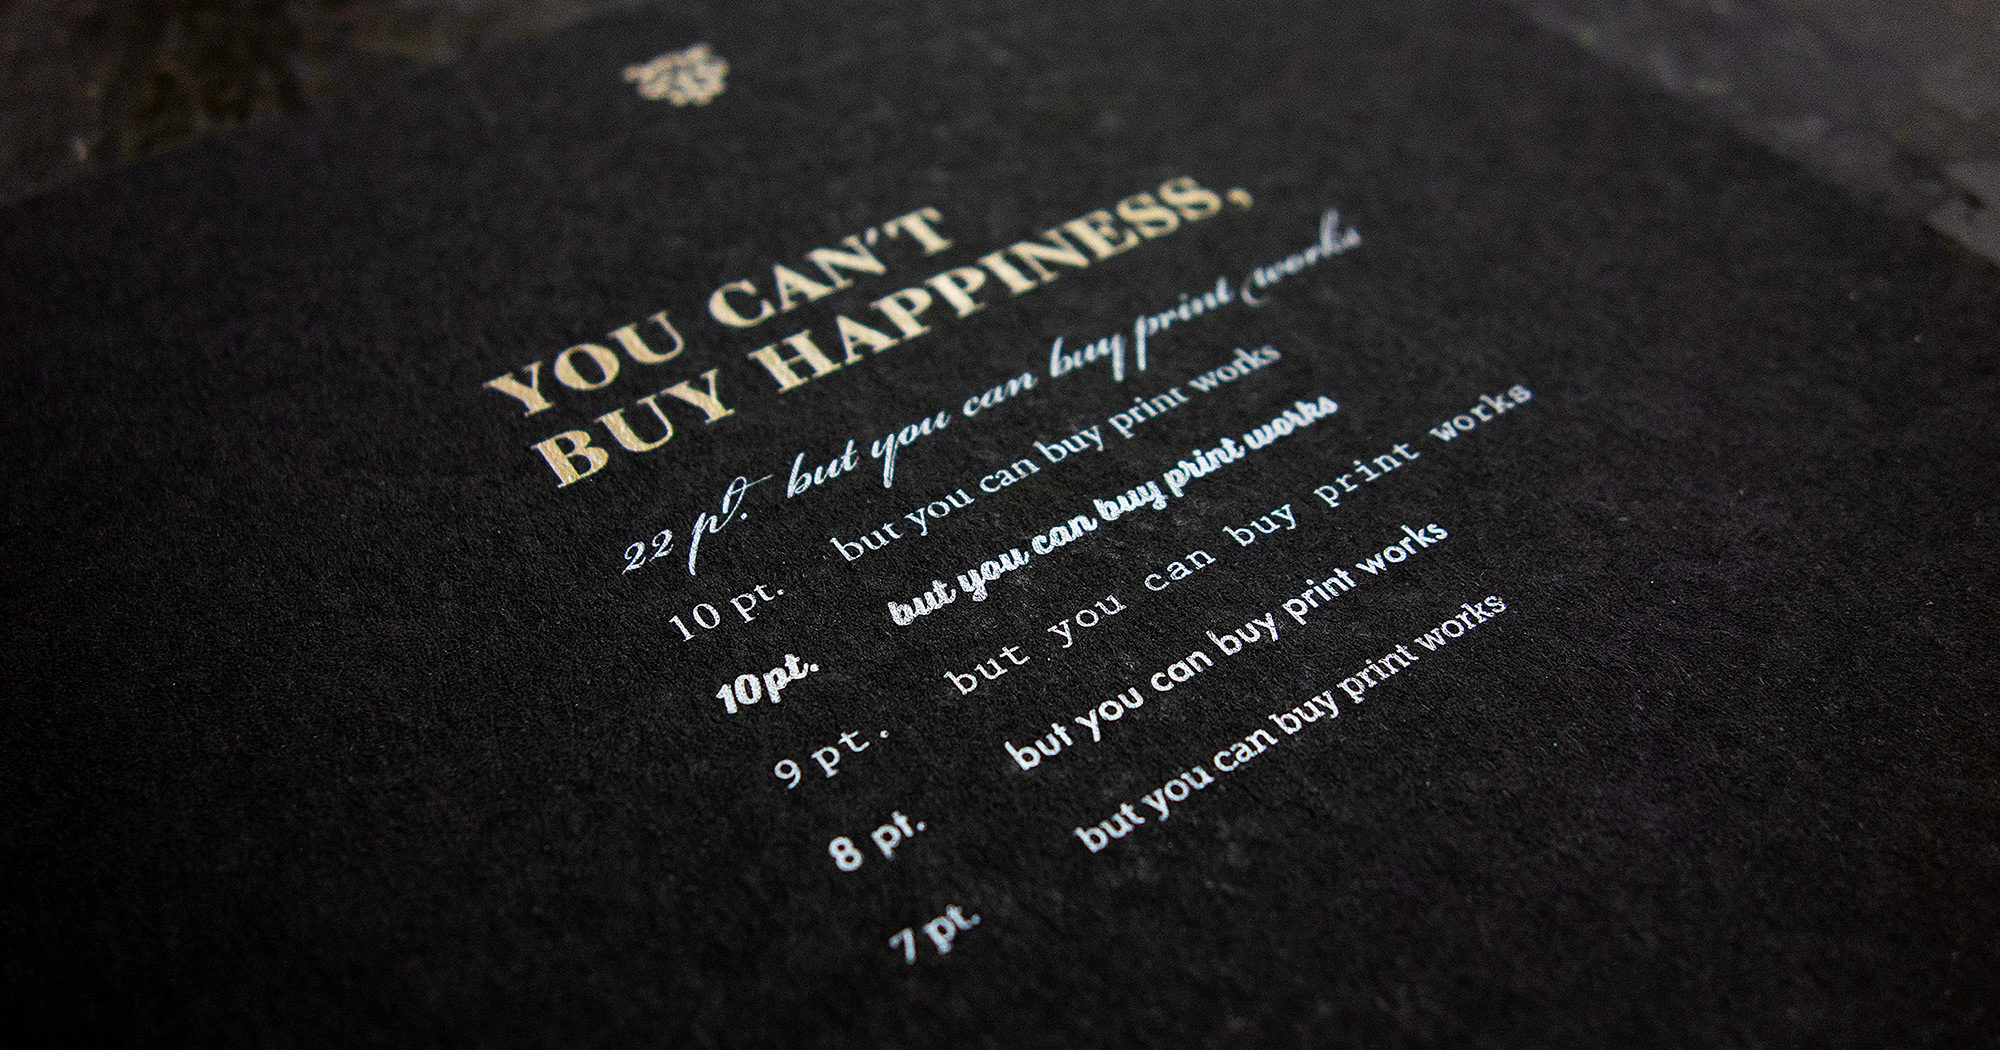 YOU CAN'T
BUY HAPPINESS,
22 pt. but you can buy print works
10 pt. but you can buy print works
10pt. but you can buy print works
9 pt. but you can buy print works
8 pt. but you can buy print works
7 pt. but you can buy print works